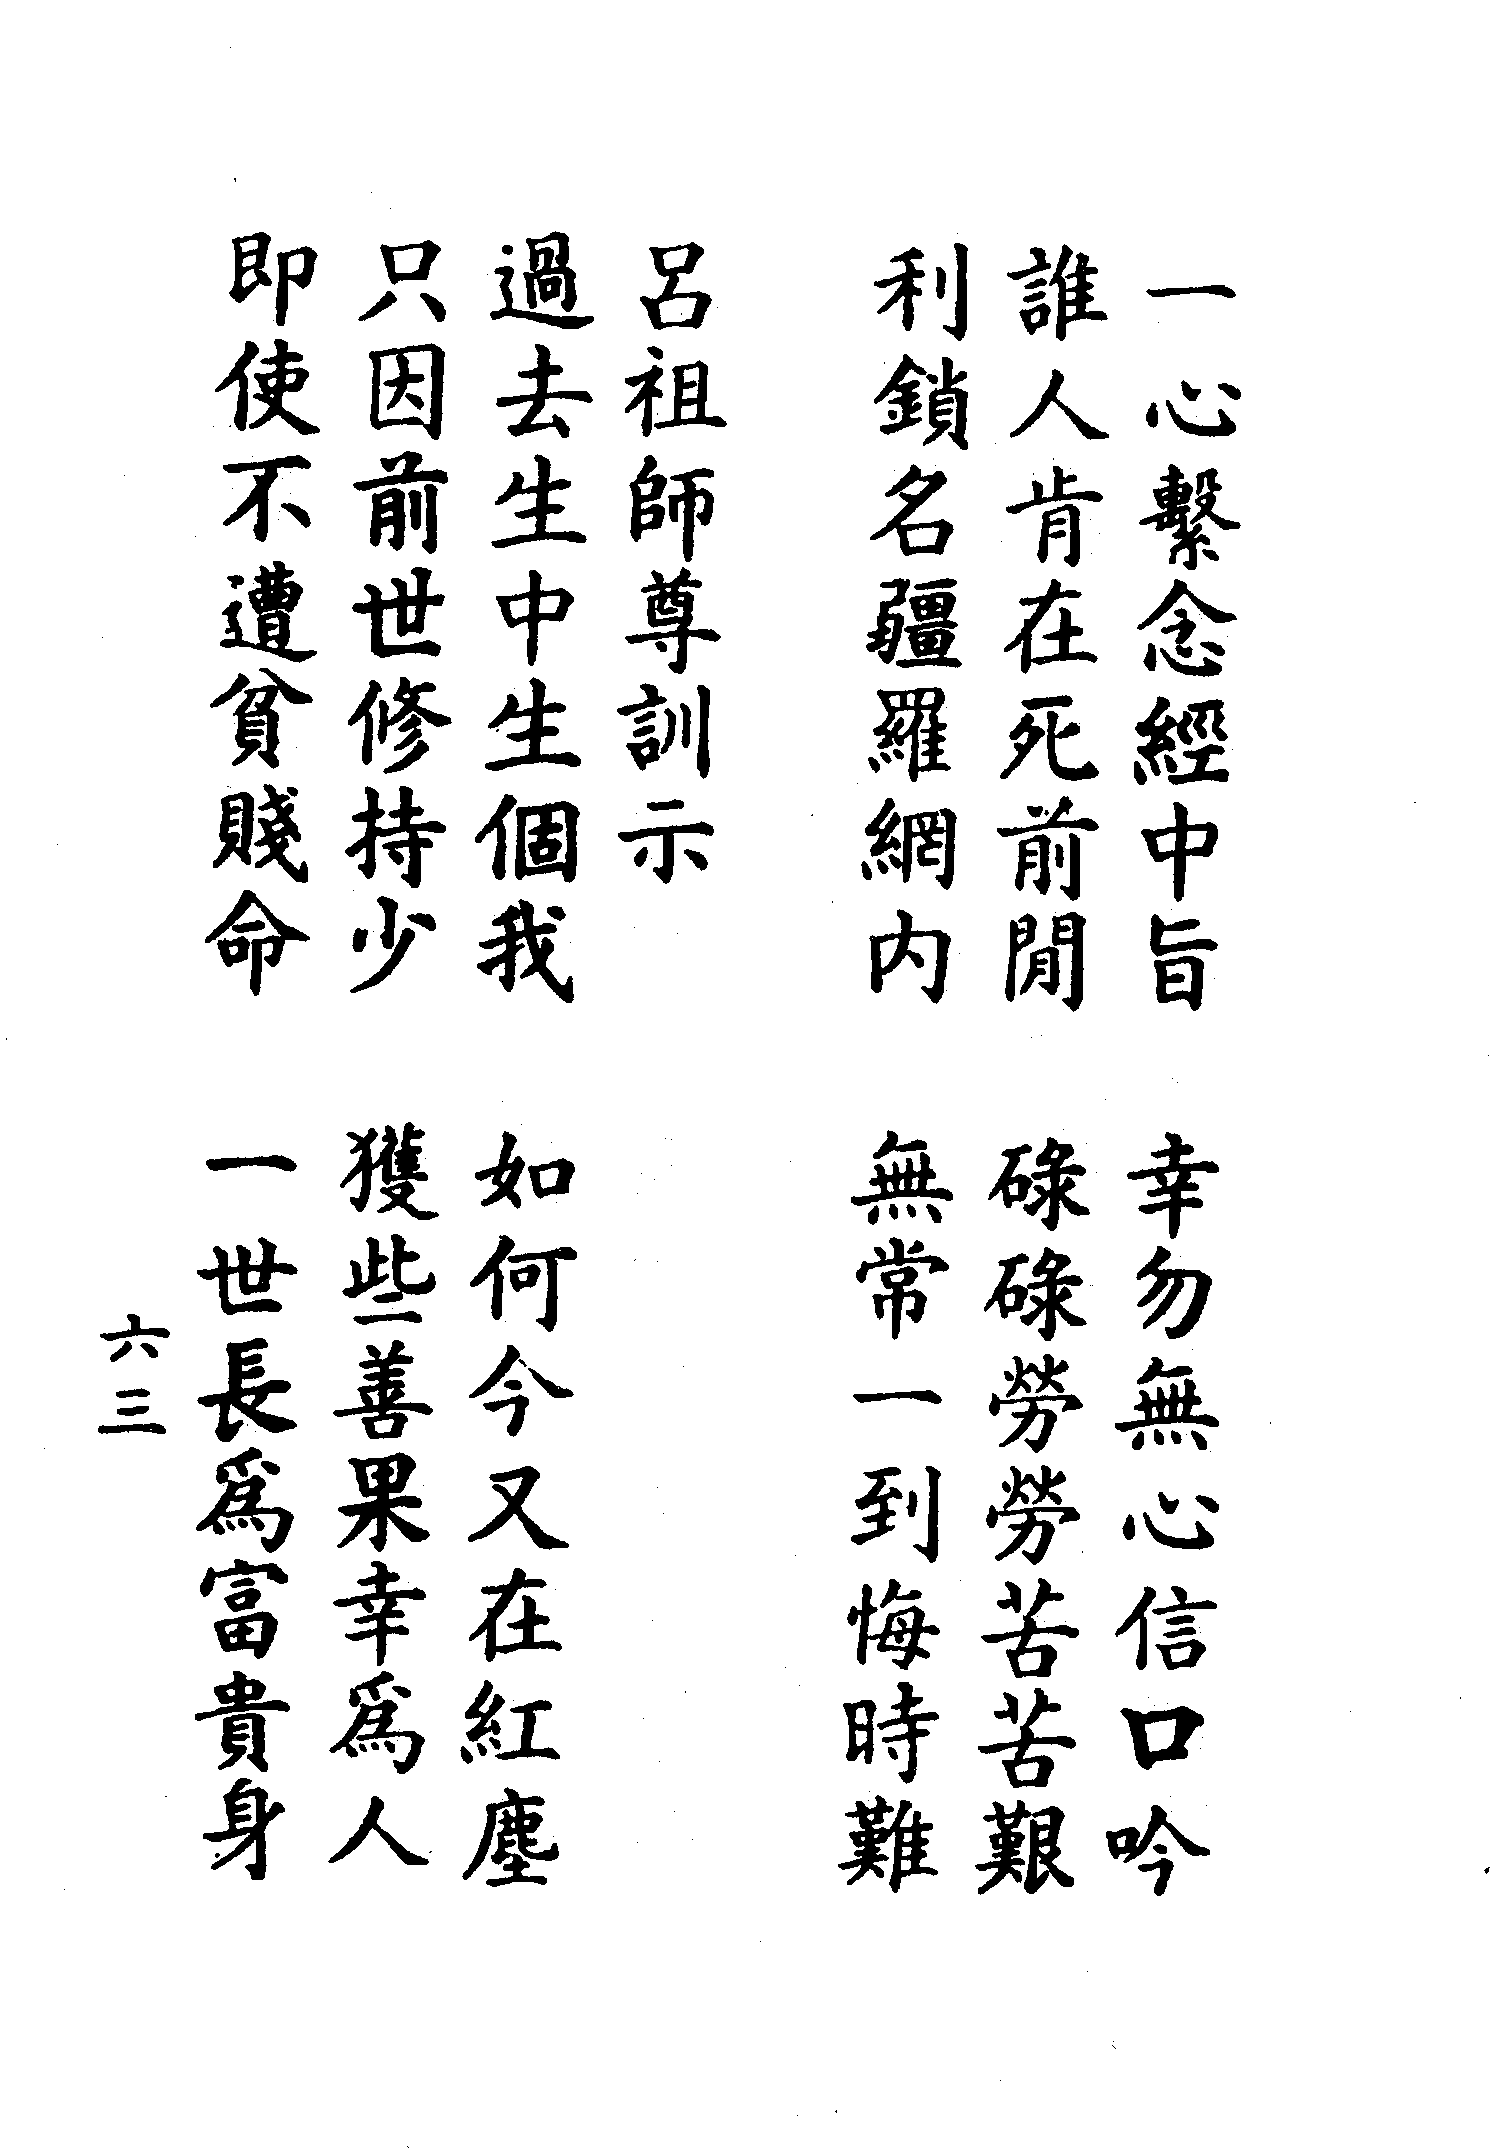 一心繫念經中旨　幸勿無心信口吟
誰人肯在死前閒　碌碌勞勞苦苦艱
利鎖名疆羅網内　無常一到悔時難
呂祖師尊訓示
過去生中生個我　如何今又在紅塵
只因前世修持少　獲些善果幸爲人
即使不遭貧賤命　一世長爲富貴身
六三